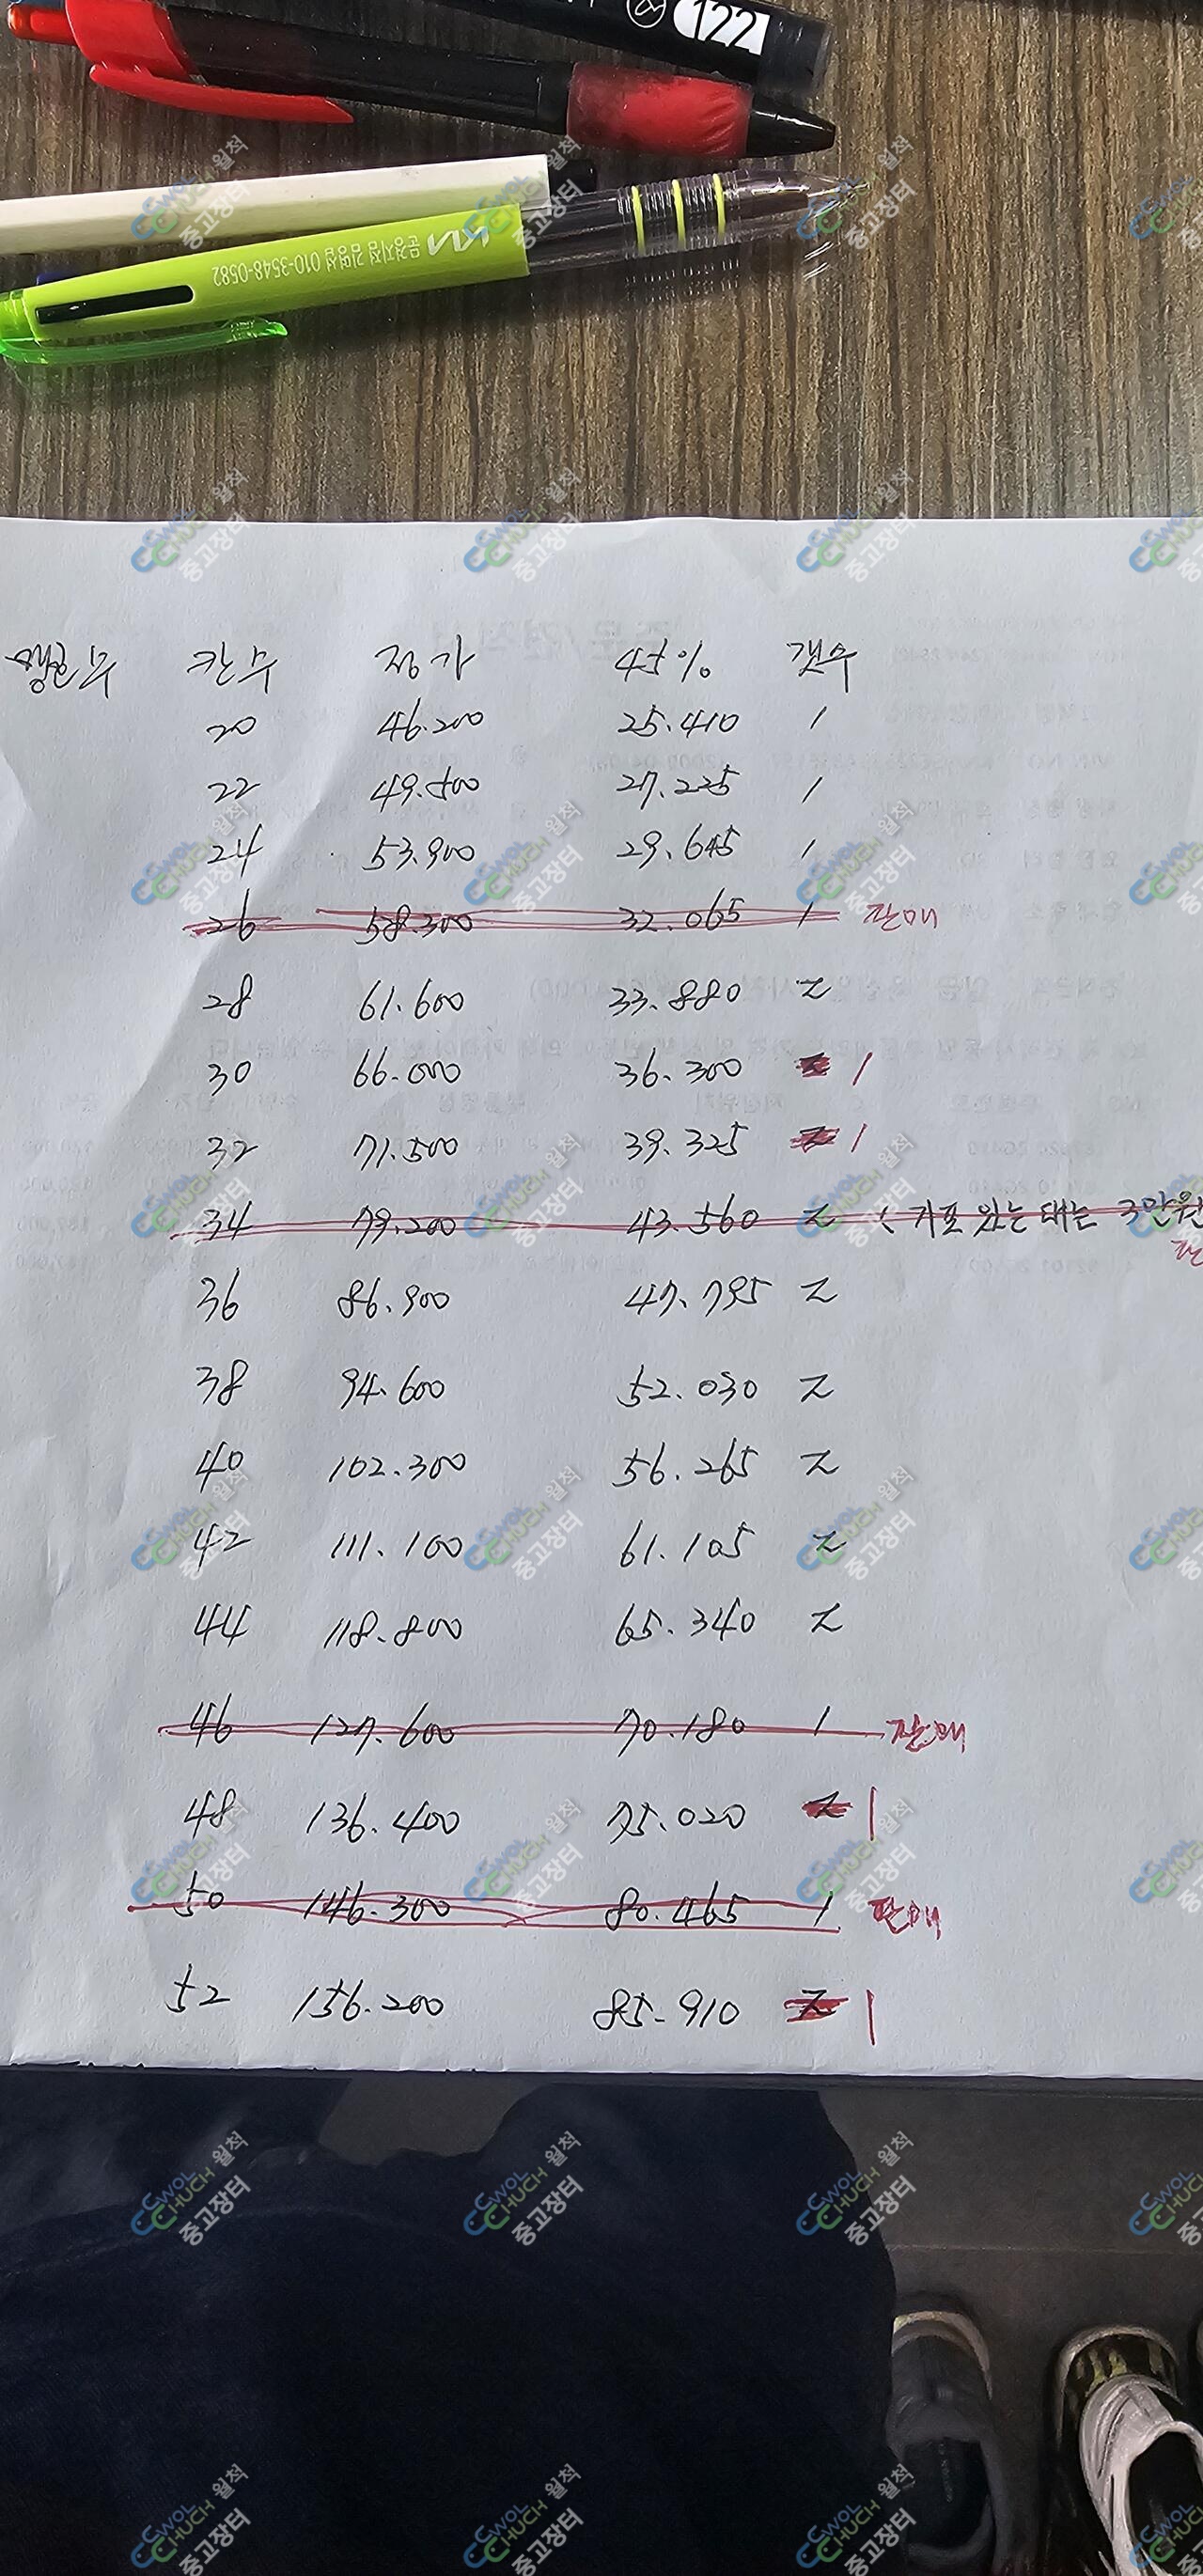 122
KM 문경지점 김명섭 010-3548-0582
칸수 정가 45% 갯수
20 46.200 25.410 1
22 49.500 27.225 1
24 53.900 29.645 1
26 58.300 32.065 1 판매
28 61.600 33.880 2
30 66.000 36.300 2 1
32 71.500 39.325 2 1
34 79.200 43.560 2 있는 대는 3만원
36 86.900 47.795 2
38 94.600 52.030 2
40 102.300 56.265 2
42 111.100 61.105 2
44 118.800 65.340 2
46 127.600 70.180 1 판매
48 136.400 75.020 2 1
50 146.300 80.465 1 판매
52 156.200 85.910 2 1
CWOL CHUCH 월척 중고장터